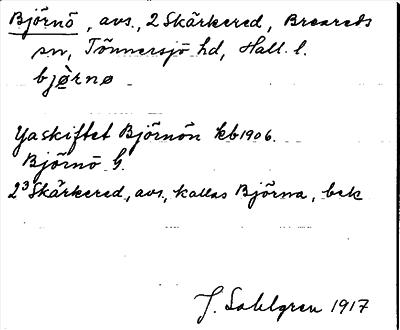 Björnö, avs., 2 Skärkered, Breareds
sn, Tönnersjö hd, Hall. l.
bjø̀rnø
Yaskiftet Björnön kb 1906.
Björnö G.
2³ Skärkered, avs., kallas Björna, bek
J. Sahlgren 1917